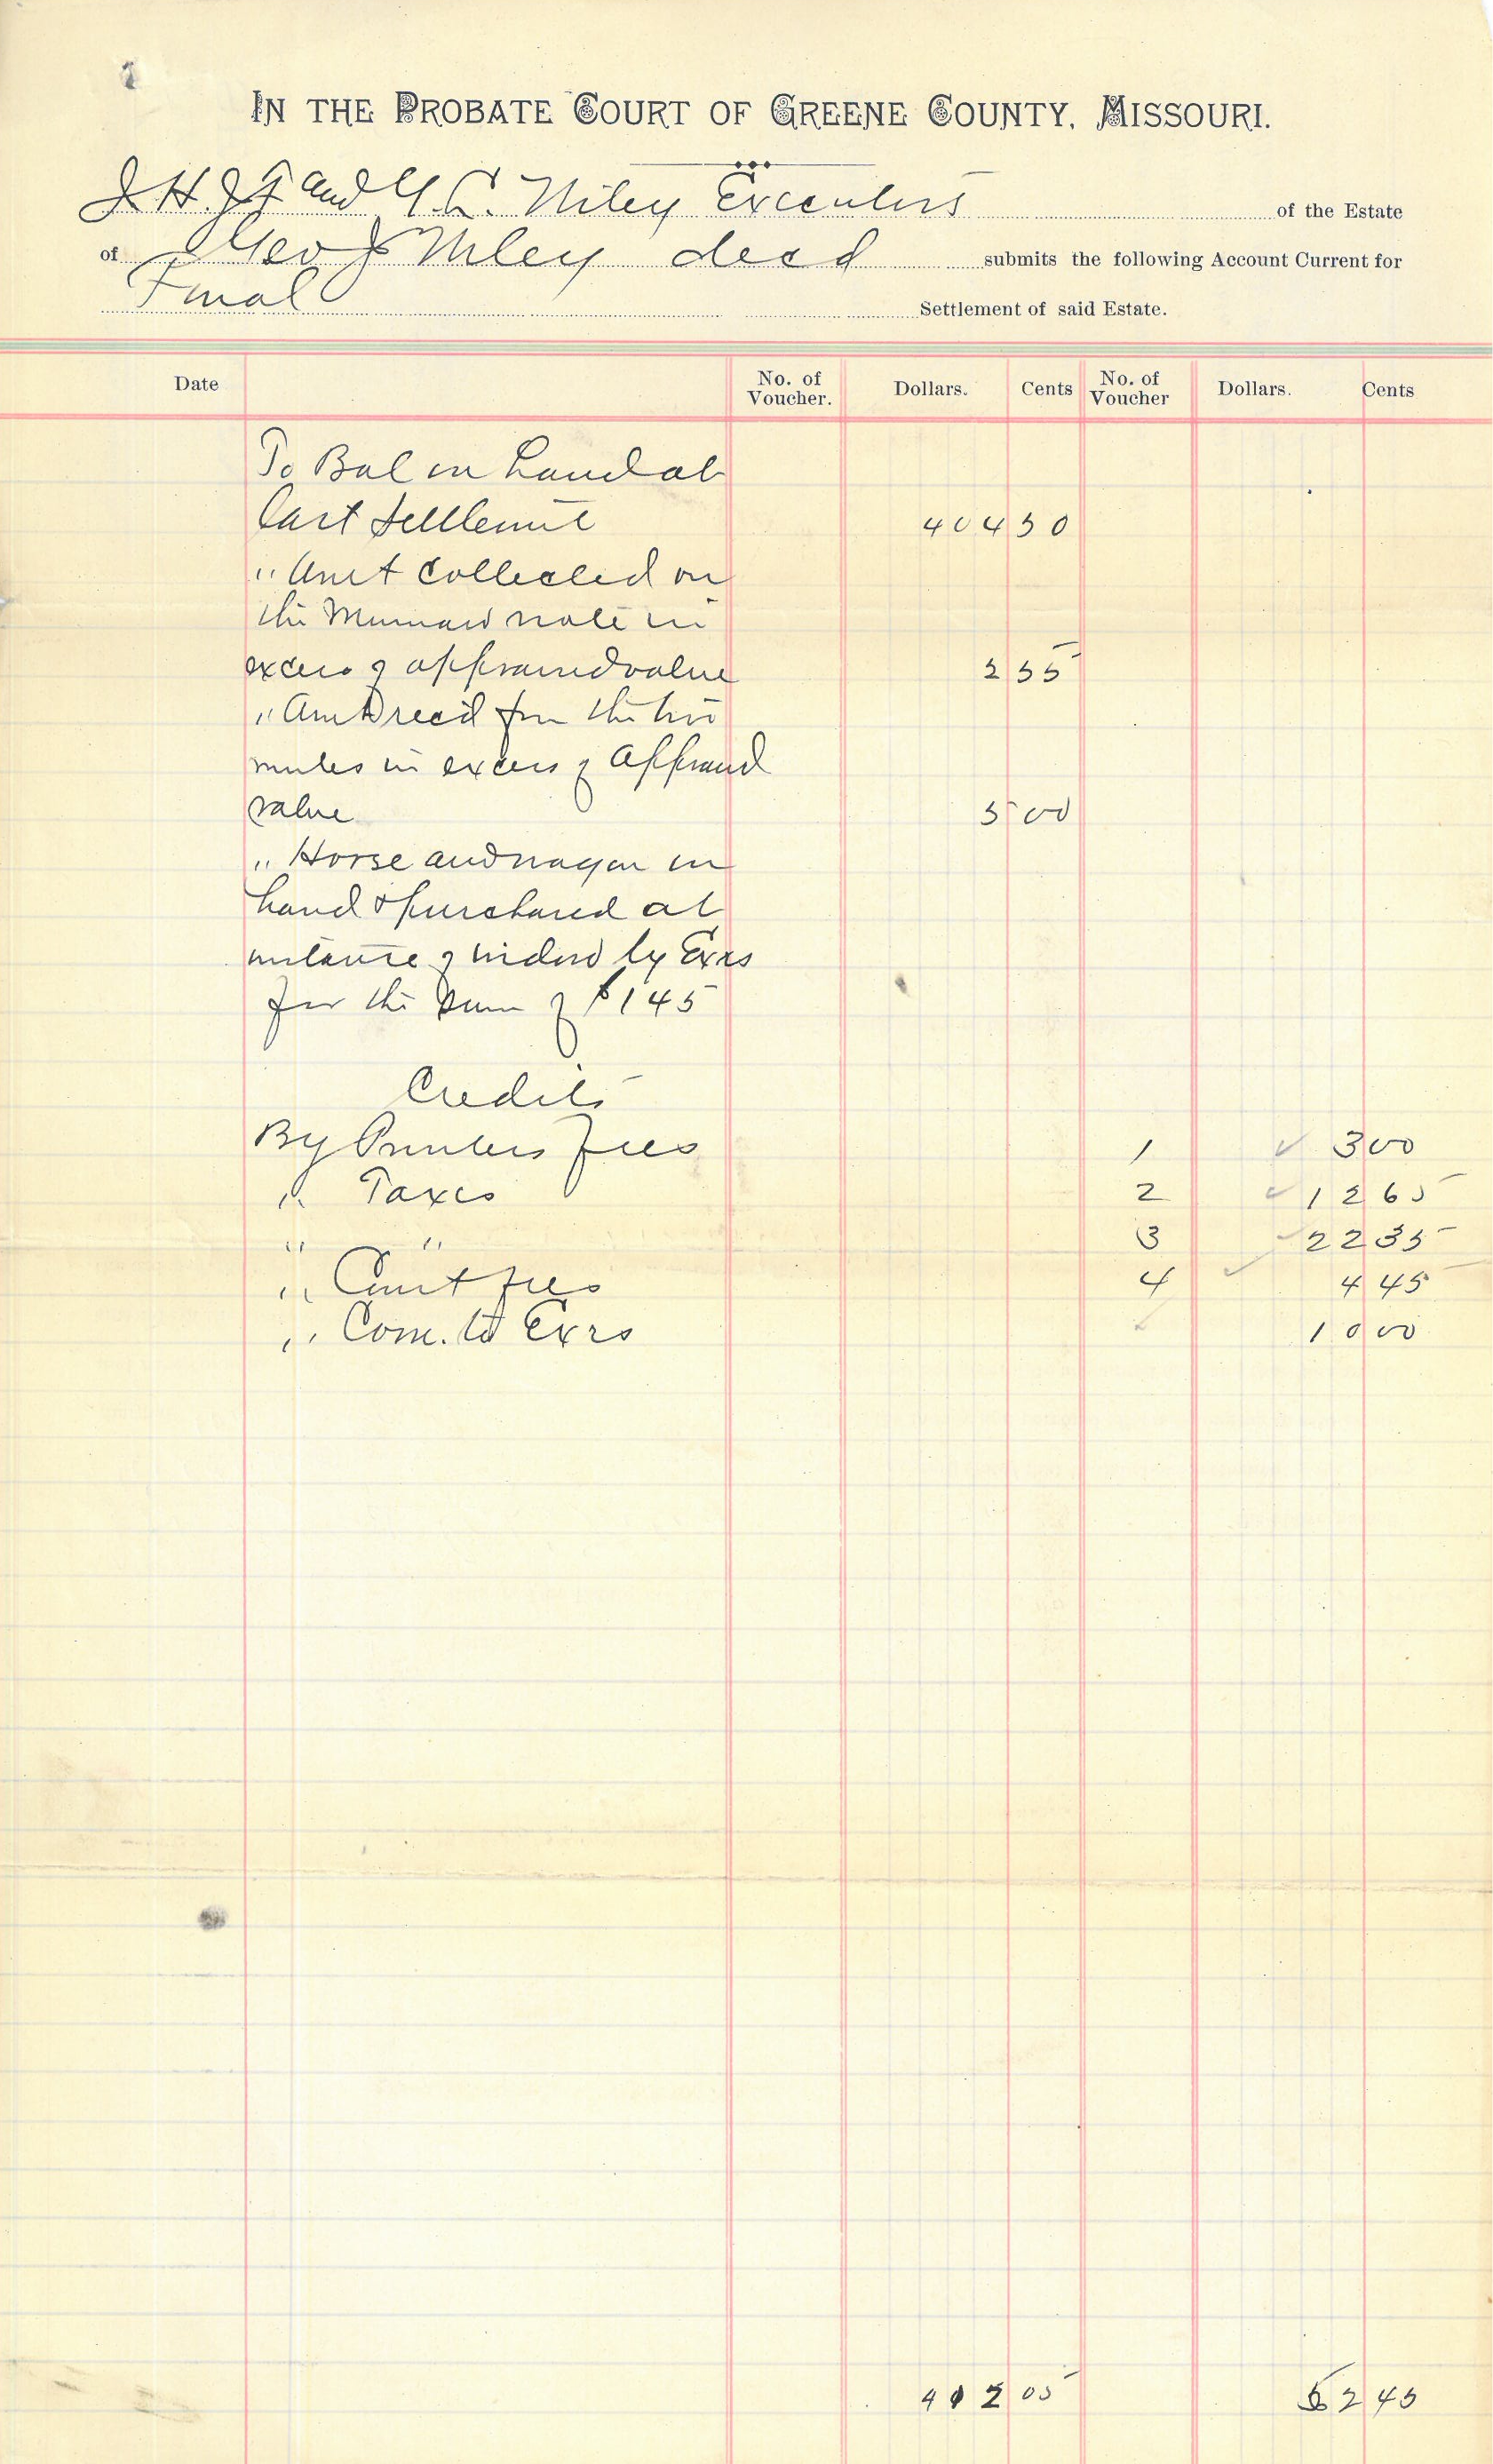 IN THE PROBATE COURT OF GREENE COUNTY, MISSOURI.
J H. J F and G. C. Wiley Executors of the Estate
of Geo J Wiley decd submits the following Account Current for
Final Settlement of said Estate.
Date No. of Voucher. Dollars. Cents No. of Voucher Dollars. Cents
To Bal in hand at
last settlemnt 404 50
" Amt collected on
the note in
excess of appraised value 2 55
" Amt recd for the two
mules in excess of appraisd
value 5 00
" Horse and wagon in
hand & purchased at
instance of widow by Exrs
for the sum of $145
Credits
By Printers fees 1 ✓ 3 00
" Taxes 2 ✓ 12 65
" " 3 ✓ 22 35
" Court fees 4 ✓ 4 45
" Com. to Exrs ✓ 10 00
412 05 52 45